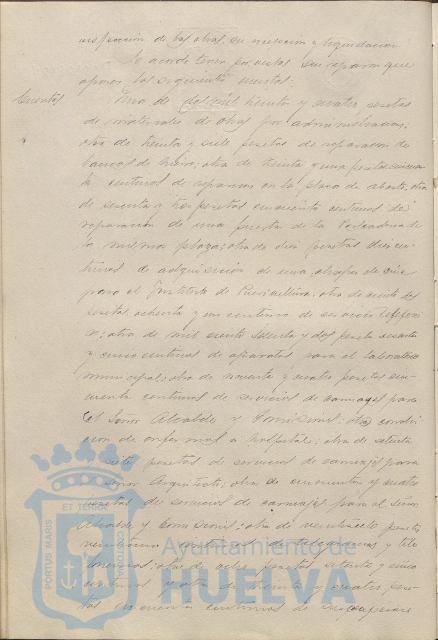 inspección de las obras, su recepción y liquidación
Se acordó tener por vistas sin reparos que
aponer las siguientes cuentas:
Cuentas
Una de dos mil treinta y cuatro pesetas
de materiales de obras por administración;
otra de treinta y siete pesetas de reparación de
bancos de hierro; otra de treinta y una pesetas cincuen
ta centimos de reparacion en la plaza de abasto; otra
de sesenta y tres pesetas cincuenta centimos de
reparación de una puerta de la Pescaderia de
la misma plaza; otra de diez pesetas diez cen
timos de adquisición de una chapa de zinc
para el Instituto de Puericultura; otra de ciento dos
pesetas ochenta y un centimos de servicio telefoni
co; otra de mil ciento setenta y dos pesetas sesenta
y cinco centimos de aparatos para el laboratorio
municipal; otra de noventa y cuatro pesetas cin
cuenta centimos de servicios de carruajes para
el Señor Alcalde y Comisiones; otra conduc
cion de enfermos a hospital; otra de setenta
y siete pesetas de servicios de carruajes para
el Señor Arquitecto; otra de cincuenta y cuatro
pesetas de servicios de carruajes para el Señor
Alcalde y Comisiones; otra de veintisiete pesetas
centimos de telegramas y tele
fonemas; otra de ocho pesetas setenta y cinco
centimos y otra de treinta y cuatro pese
tas noventa centimos de
PORTUS MARIS
ET TERRAE
CUSTODIA
Ayuntamiento de
HUELVA